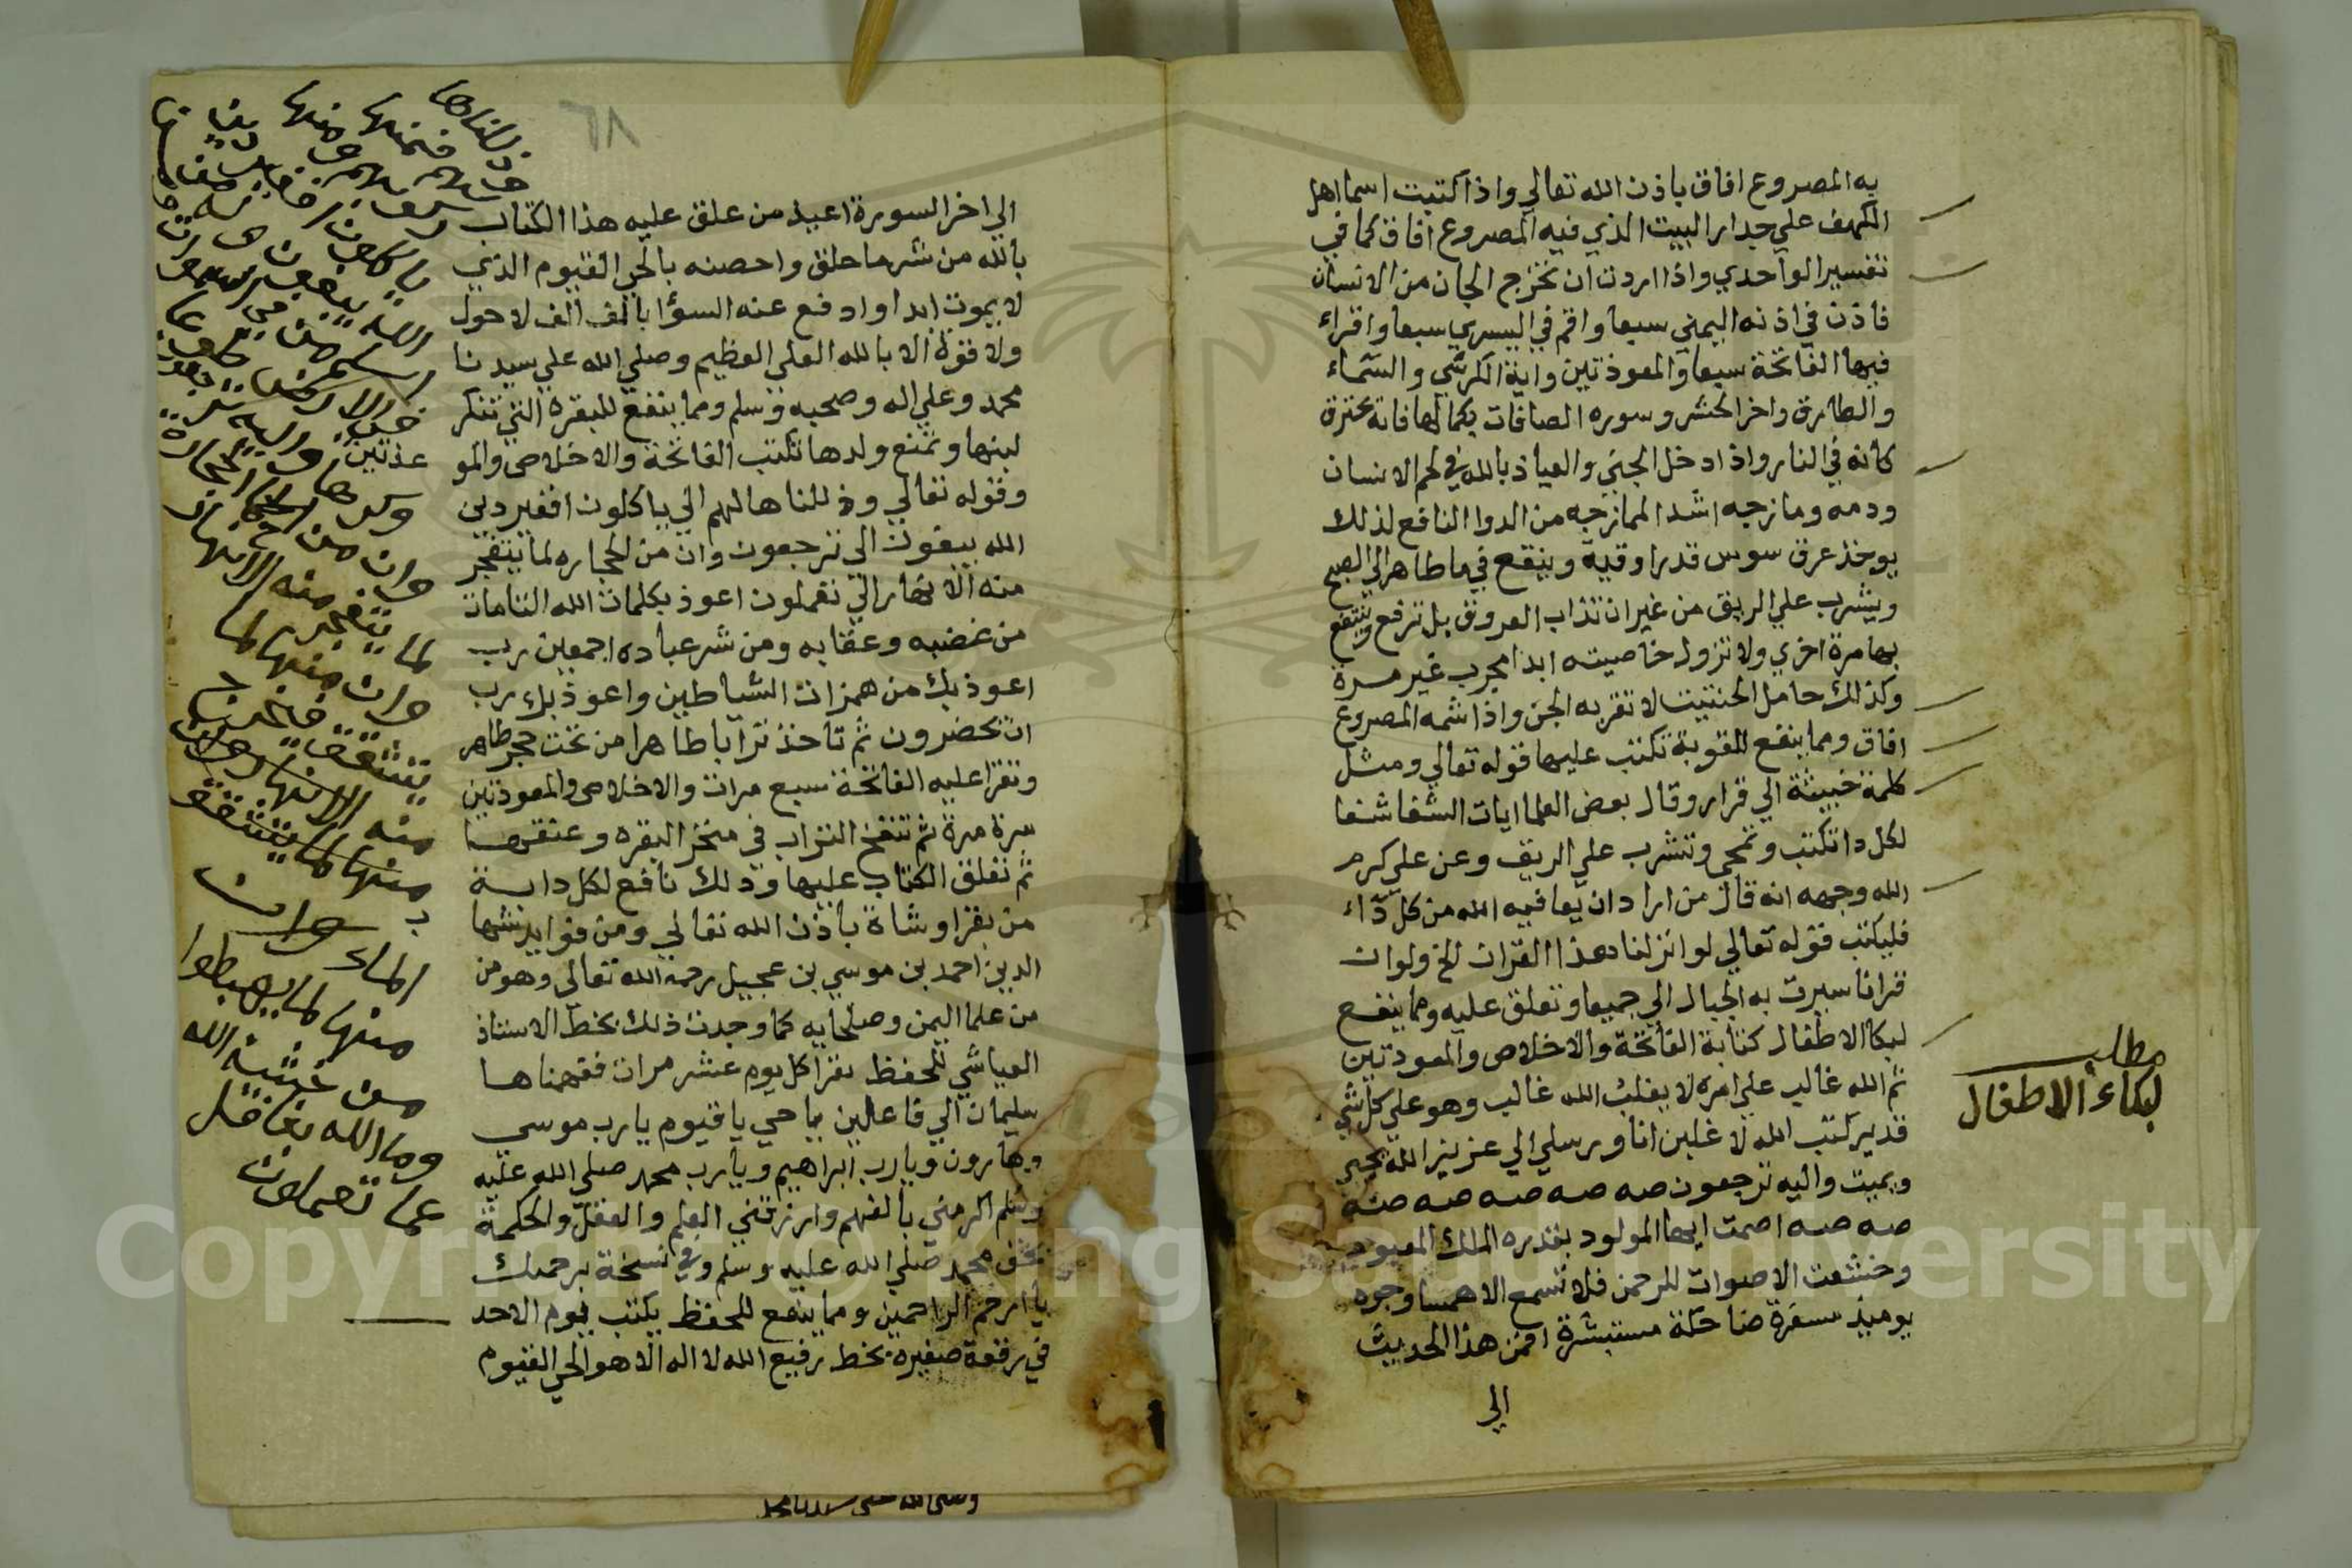 به المصروع افاق باذن الله تعالي واذا كتبت اسما اهل
الكهف علي جدار البيت الذي فيه المصروع افاق كما في
تفسير الواحدي واذا اردت ان تخرج الجان من الانسان
فاذن في اذنه اليمني سبعا واقم في اليسري سبعا واقراء
فيها الفاتحة سبعا والمعوذتين واية الكرسي والسماء
والطارق واخر الحشر وسوره الصافات بكمالها فانه يحترق
كانه في النار واذا دخل الجني والعياذ بالله في لحم الانسان
ودمه ومازجه اشد الممازجه من الدوا النافع لذلك
يوخذ عرق سوس قدر اوقية وينقع في ما طاهر الي الصبح
ويشرب علي الريق من غير ان تذاب العروق بل ترفع وينتفع
بها مرة اخري ولا تزول خاصيته ابدا مجرب غير مرة
وكذلك حامل الحنتيت لا تقربه الجن واذا شمه المصروع
افاق ومما ينفع للقوبة تكتب عليها قوله تعالي ومثل
كلمة خبيثة الي قرار وقال بعض العلما ايات الشفا شفا
لكل دا تكتب وتمحي وتشرب علي الريق وعن علي كرم
الله وجهه انه قال من اراد ان يعافيه الله من كل داء
فليكتب قوله تعالي لو انزلنا هذا القران الخ ولو ان
قرانا سيرت به الجبال الي جميعا وتعلق عليه ومما ينفع
لبكا الاطفال كتابة الفاتحة والاخلاص والمعوذتين
ثم الله غالب علي امره لا يغلب الله غالب وهو علي كل شي
قدير كتب الله لا غلبن انا ورسلي الي عزيز الله يحيي
ويميت واليه ترجعون صه صه صه صه صه
صه صه اصمت ايها المولود بقدره الملك المعبود
وخشعت الاصوات للرحمن فلا تسمع الا همسا وجوه
يوميذ مسفرة ضاحكة مستبشرة افمن هذا الحديث
الي
مطلب
لبكاء الاطفال
٦٨
الي اخر السورة اعيذ من علق عليه هذا الكتاب
بالله من شر ما خلق واحصنه بالحي القيوم الذي
لا يموت ابدا وادفع عنه السؤا بالف الف لا حول
ولا قوة الا بالله العلي العظيم وصلي الله علي سيدنا
محمد وعلي اله وصحبه وسلم ومما ينفع للبقرة التي تنكر
لبنها وتمنع ولدها تكتب الفاتحة والاخلاص والمو
وقوله تعالي وذللناها لهم الي ياكلون افغير دين
الله يبغون الي ترجعون وان من الحجاره لما يتفجر
منه الانهار الي تعملون اعوذ بكلمات الله التامات
من غضبه وعقابه ومن شر عباده اجمعين رب
اعوذ بك من همزات الشياطين واعوذ بك رب
ان يحضرون ثم تاخذ ترابا طاهرا من تحت حجر طاهر
وتقرا عليه الفاتحة سبع مرات والاخلاص والمعوذتين
مرة مرة ثم تنفخ التراب في منخر البقره وعنقها
ثم تعلق الكتاب عليها وذلك نافع لكل دابة
من بقر او شاة باذن الله تعالي ومن فوايد شهاب
الدين احمد بن موسي بن عجيل رحمه الله تعالي وهو من
من علما اليمن وصلحايه كما وجدت ذلك بخط الاستاذ
العياشي للحفظ يقرا كل يوم عشر مرات ففهمناها
سليمان الي فاعلين يا حي يا قيوم يا رب موسي
وهارون ويارب ابراهيم ويارب محمد صلي الله عليه
وسلم اكرمني بالفهم وارزقني العلم والعقل والحكمة
بحق محمد صلي الله عليه وسلم وفي نسخة برحمتك
يا ارحم الراحمين ومما ينفع للحفظ يكتب يوم الاحد
في رقعة صغيره بخط رفيع الله لا اله الا هو الحي القيوم
وذللناها
عذتين
وان من الحجارة
لما يتفجر منه الانهار
وان منها لما
يتشقق فيخرج
منه
الماء وان
منها لما يهبط
من خشية الله
وما الله بغافل
عما تعملون
Copyright © King Saud University
1957